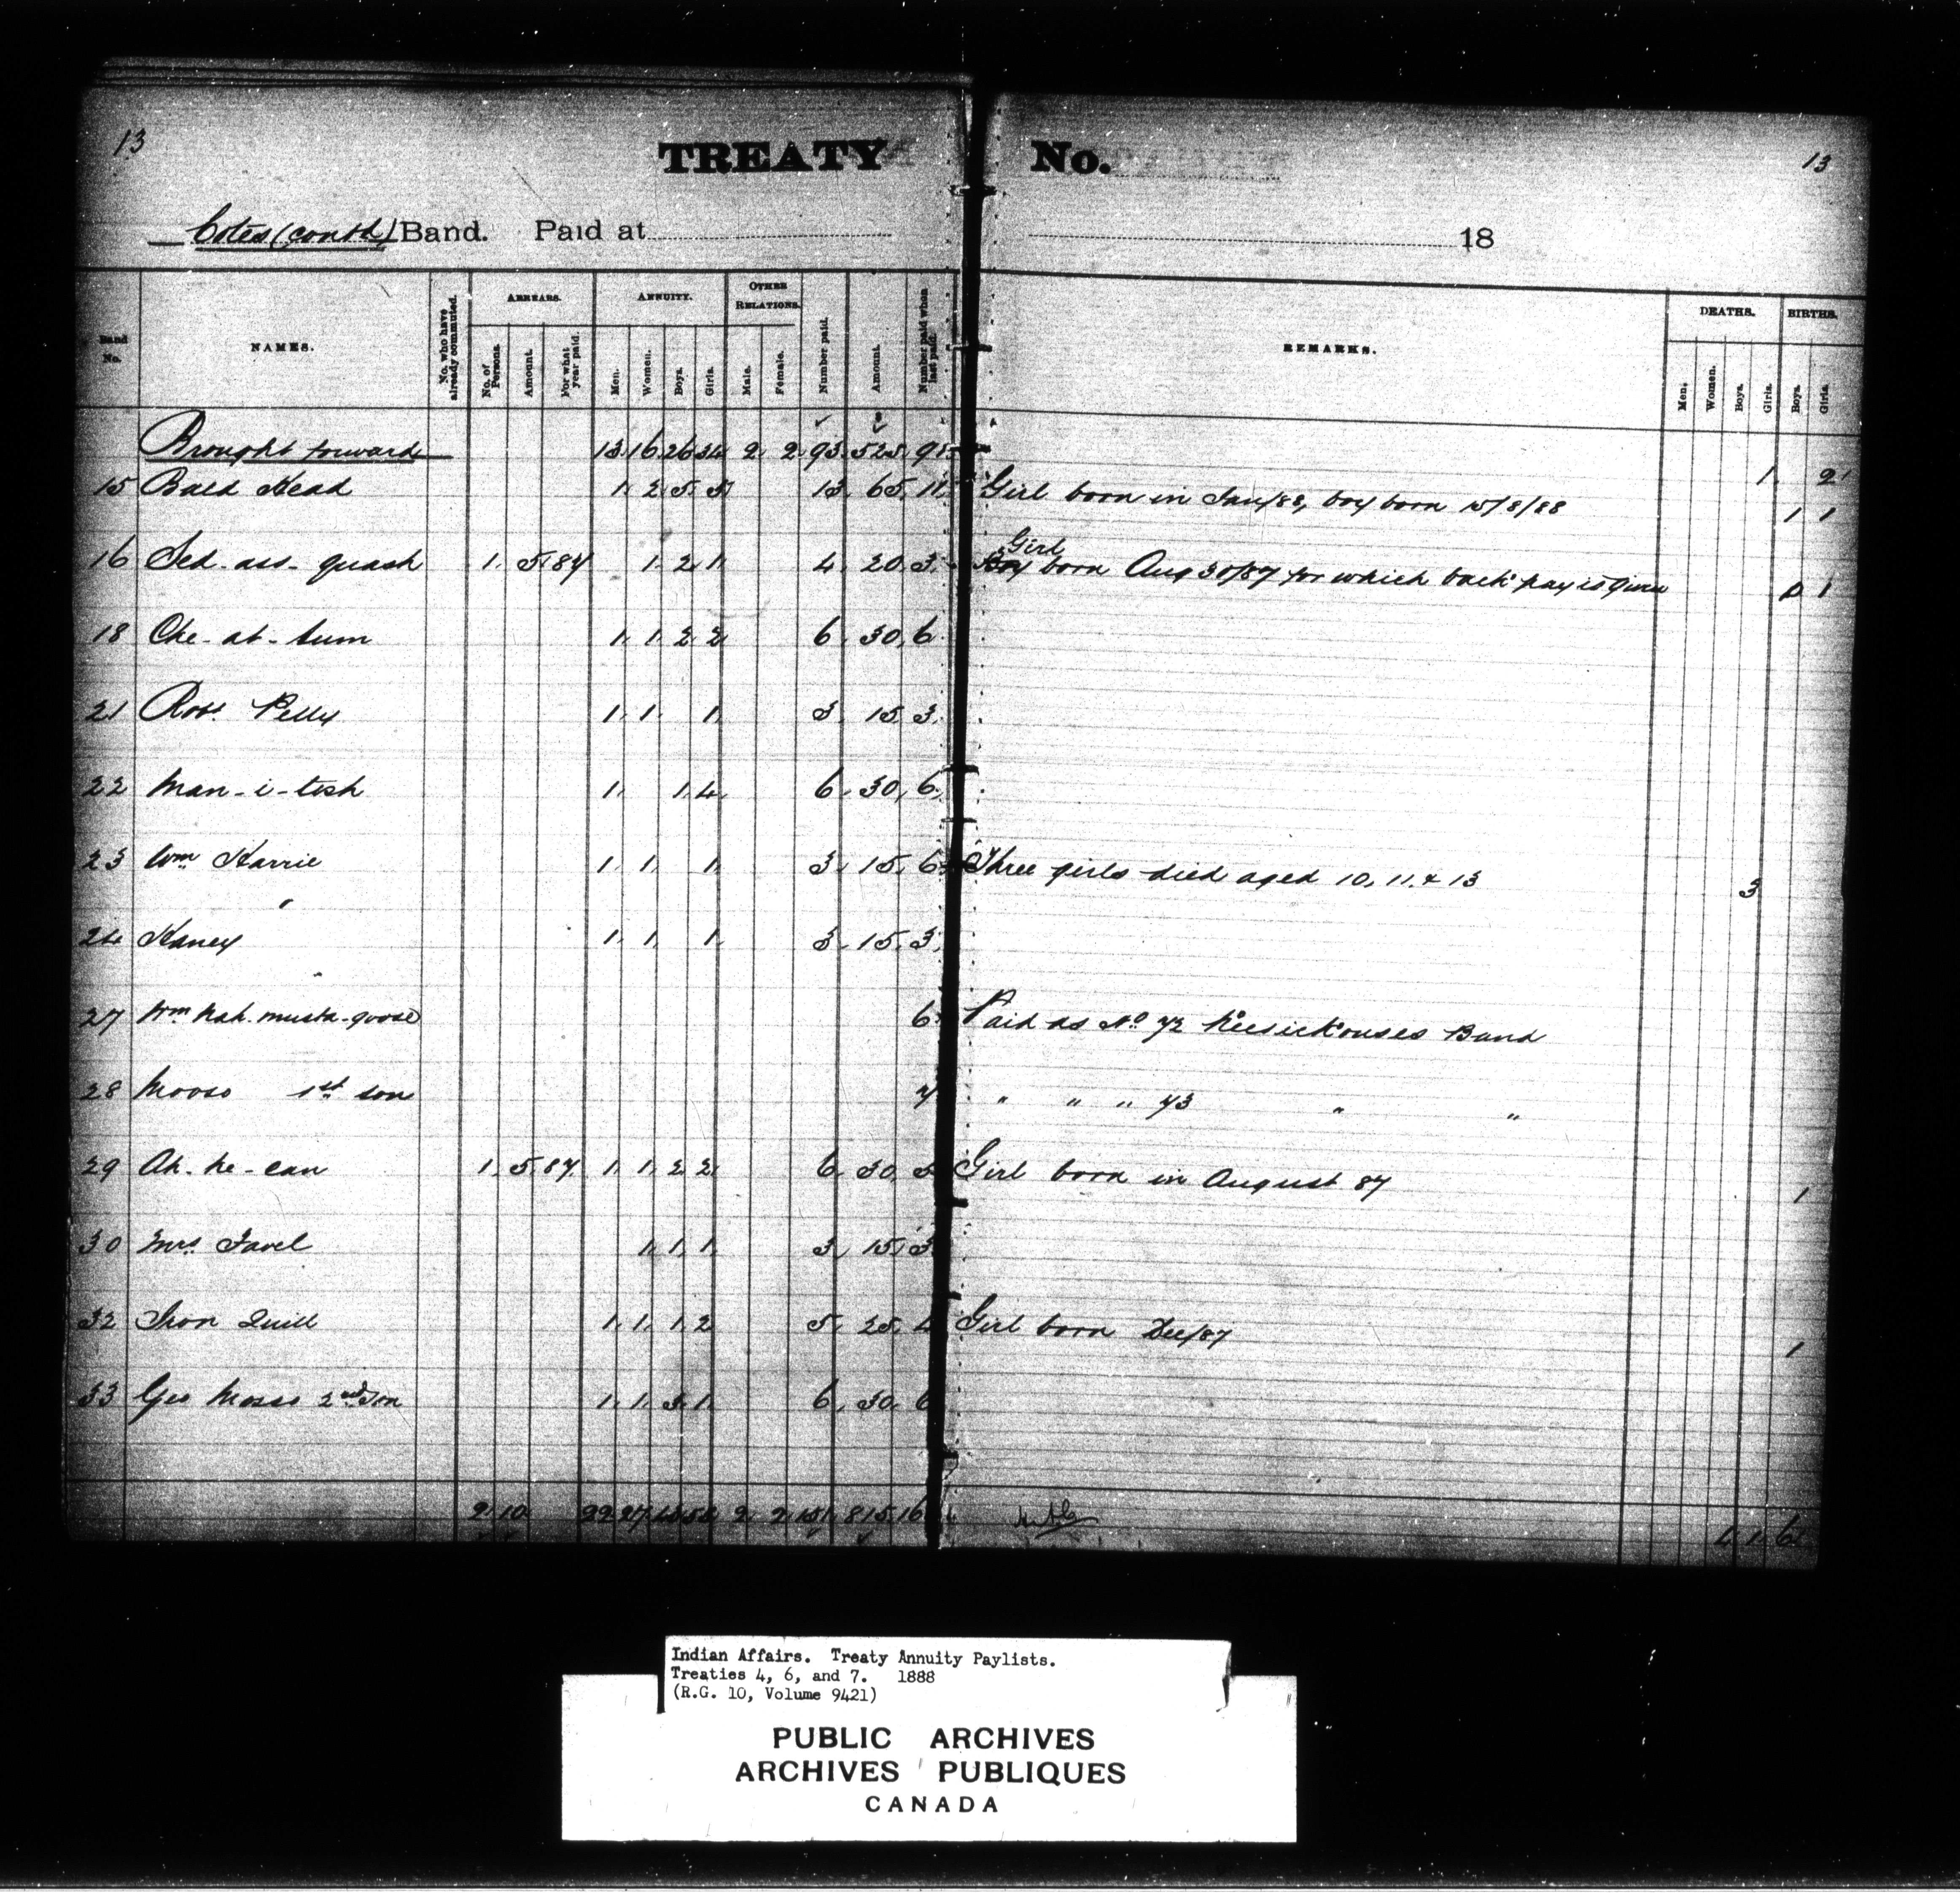 13
TREATY No.
13
Cotes (contd) Band. Paid at 18
Band No. NAMES. No. who have already commuted. ARREARS. No. of Persons. Amount. For what year paid. ANNUITY. Men. Women. Boys. Girls. OTHER RELATIONS. Male. Female. Number paid. Amount. Number paid when last paid. REMARKS. DEATHS. Men. Women. Boys. Girls. BIRTHS. Boys. Girls.
Brought forward 13 16 26 34 2 2 93 525 91 1 2
15 Bald Head 1 2 5 5 13 65 11 Girl born in Jan/88, boy born 15/8/88 1 1
Girl
16 Sed-ass-quash 1 5 87 1 2 1 4 20 3 born Aug 30/87 for which back pay is given 1
18 Che-at-sum 1 1 2 2 6 30 6
21 Robt. Pelly 1 1 1 3 15 3
22 Man-i-tosh 1 1 4 6 30 6
23 Wm Karrie 1 1 1 3 15 6 Three girls died aged 10, 11, & 13 3
24 Kaney 1 1 1 3 15 3
27 Wm Nah-musta-goose 6 Paid as No 72 Keesickouses Band
28 Mooso 1st son 7 " " " 73 " "
29 Ah-ke-can 1 5 87 1 1 2 2 6 30 5 Girl born in August 87 1
30 Mrs Favel 1 1 1 3 15 3
32 Iron Quill 1 1 1 2 5 25 4 Girl born Dec/87 1
33 Geo Mosso 2nd Son 1 1 3 1 6 30 6
2 10 22 27 2 2 151 815 16 1 6
Indian Affairs. Treaty Annuity Paylists.
Treaties 4, 6, and 7. 1888
(R.G. 10, Volume 9421)
PUBLIC ARCHIVES
ARCHIVES PUBLIQUES
CANADA